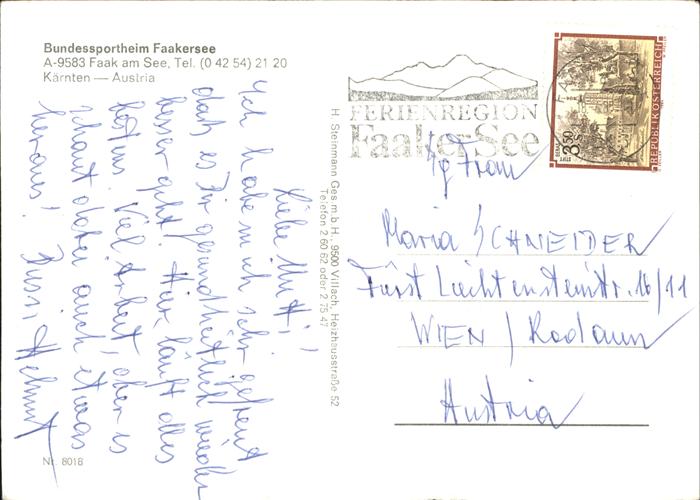 Bundessportheim Faakersee
A-9583 Faak am See, Tel. (0 42 54) 21 20
Kärnten — Austria
Liebe Mutti!
Ich habe mich sehr gefreut
daß es Dir gesundheitlich wieder
besser geht. Hier läuft alles
bestens. Viel Arbeit, aber es
schaut dabei auch etwas
heraus! Bussi Helmut
Nr. 8018
H. Steinmann Ges.m.b.H., 9500 Villach, Heizhausstraße 52
Telefon 2 60 62 oder 2 75 47
FERIENREGION
Faaker See
REPUBLIK ÖSTERREICH
S 3.50
Frau
Maria SCHNEIDER
Fürst Liechtensteinstr. 16/11
WIEN / Rodaun
Austria